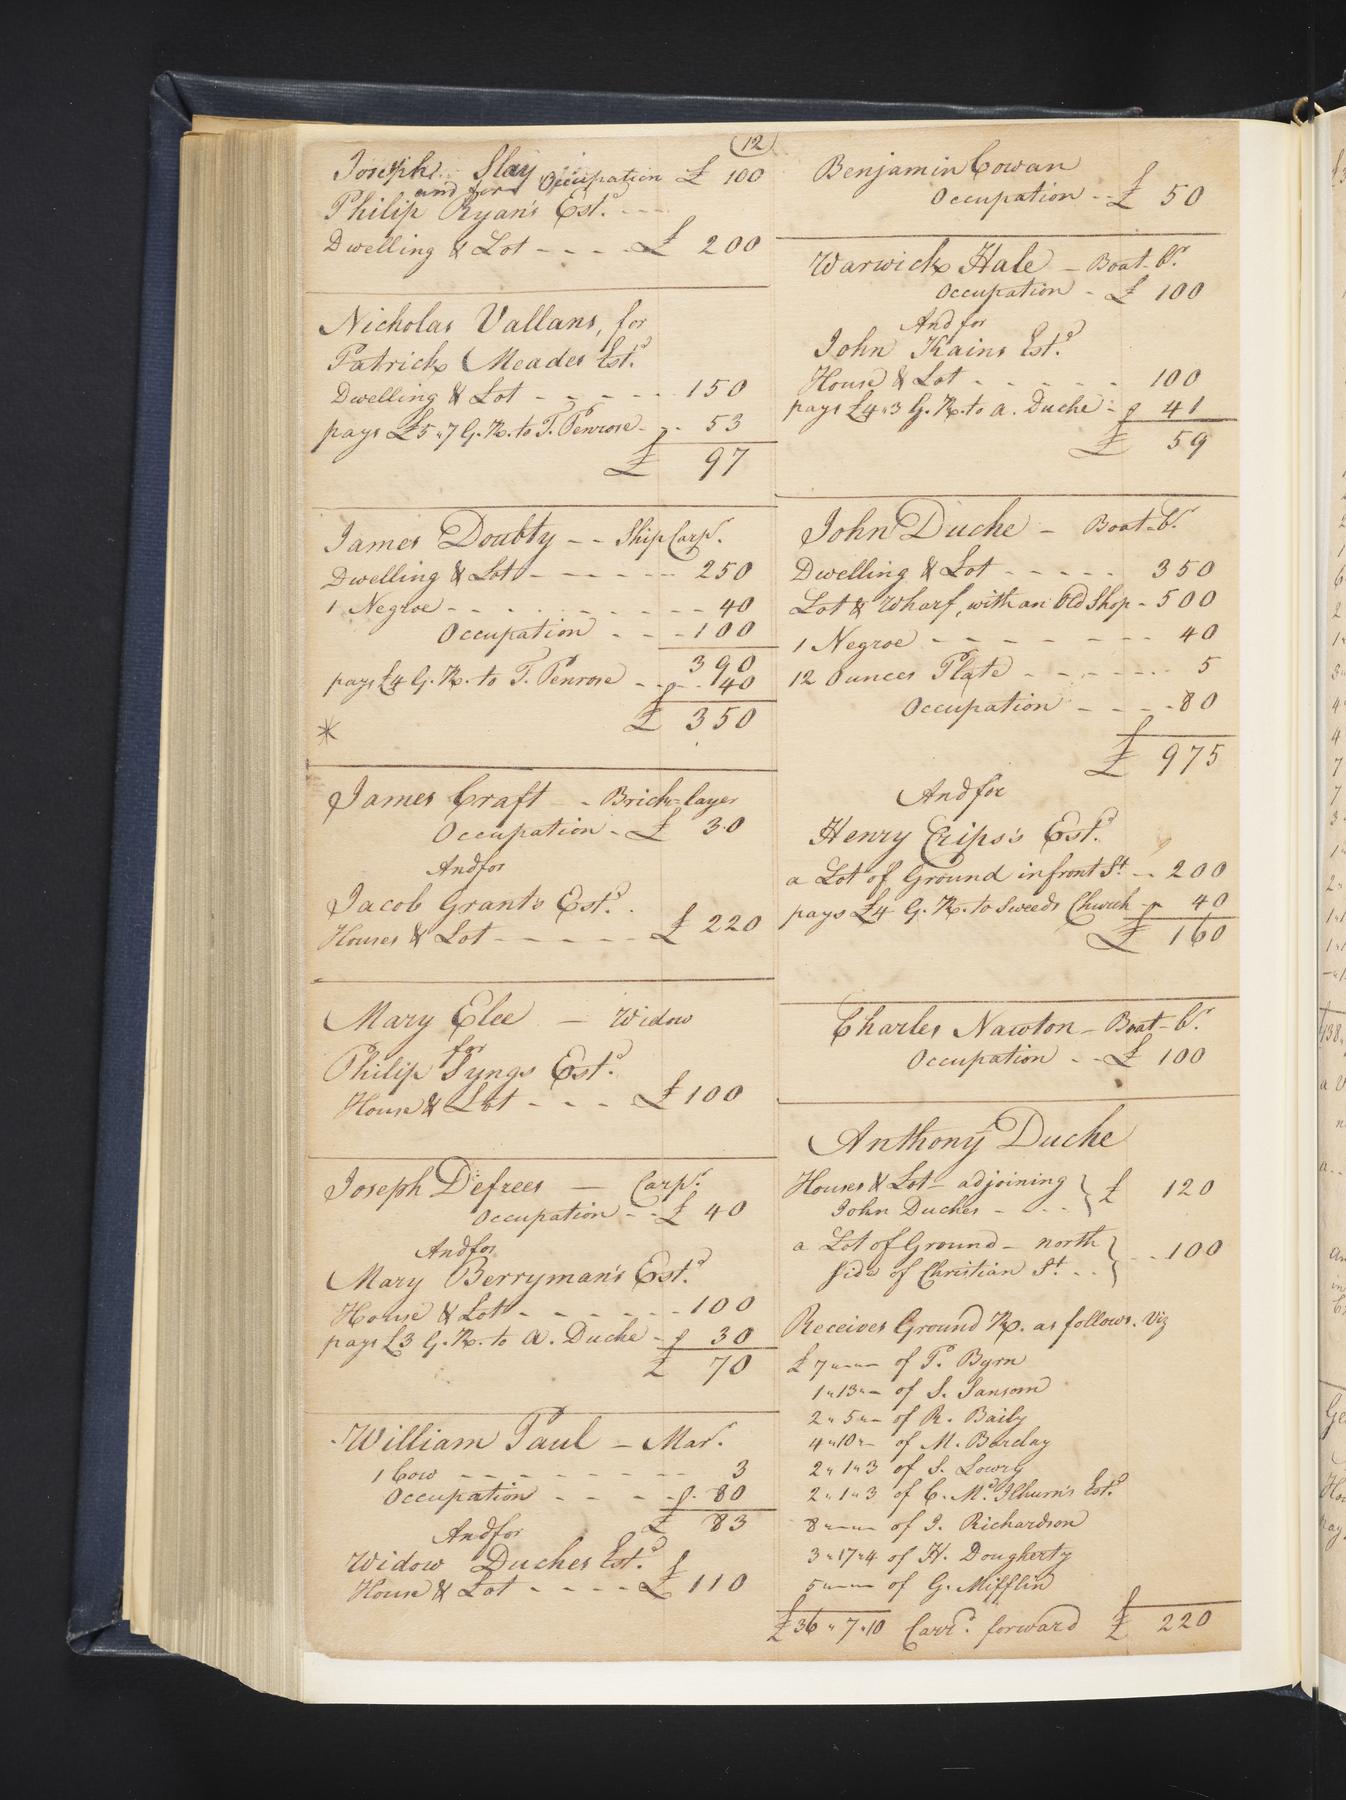 12
Joseph Slay Occupation £ 100
and for
Philip Ryan's Est.
Dwelling & Lot - - - - £ 200
Nicholas Vallans, for
Patrick Meades Est.
Dwelling & Lot - - - - - 150
pays £5"7 G. R. to T. Penrose - - 53
£ 97
James Doubty - - Ship Carpr.
Dwelling & Lot - - - - - 250
1 Negroe - - - - - - - - - 40
Occupation - - - 100
390
pays £4 G. R. to T. Penrose - - - 40
£ 350
James Craft - - Brick=layer
Occupation - £ 30
And for
Jacob Grant's Est.
Houses & Lot - - - - - £ 220
Mary Elee - Widow
for
Philip Syngs Est.
House & Lot - - - £ 100
Joseph Defrees - Carpr.
Occupation - - £ 40
And for
Mary Berryman's Est.
House & Lot - - - - - - 100
pays £3 G. R. to A. Duche - 30
£ 70
William Paul - Marr.
1 Cow - - - - - - - - - 3
Occupation - - - - 80
£ 83
And for
Widow Duches Est.
House & Lot - - - - £ 110
Benjamin Cowan
Occupation - - £ 50
Warwick Hale - Boat-br.
Occupation - £ 100
And for
John Kains Est.
House & Lot - - - - - 100
pays £4"3 G. R. to a. Duche - 41
£ 59
John Duche - Boat-br.
Dwelling & Lot - - - - - 350
Lot & Wharf, with an Old Shop - 500
1 Negroe - - - - - - - - 40
12 Ounces Plate - - - - - - 5
Occupation - - - - 80
£ 975
And for
Henry Crips's Est.
a Lot of Ground in front St. - - 200
pays £4 G. R. to Sweeds Church - 40
£ 160
Charles Nawton - Boat-br.
Occupation - - £ 100
Anthony Duche
Houses & Lot - adjoining
John Duches - - - - £ 120
a Lot of Ground - north
side of Christian St. - - - - 100
Receives Ground R. as follows. Viz
£ 7"-"- of P. Byrn
1"13"- of S. Sansom
2"5"- of R. Baily
4"10"- of M. Barclay
2"1"3 of S. Lowry
2"1"3 of C. Mc.Ilhurn's Est.
8"-"- of J. Richardson
3"17"4 of H. Dougherty
5"-"- of G. Mifflin
£ 36"7"10 Carrd. forward £ 220